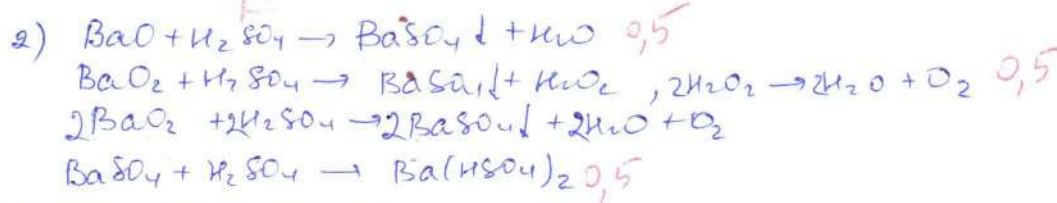 2) BaO + H₂SO₄ → BaSO₄↓ + H₂O 0,5
BaO₂ + H₂SO₄ → BaSO₄↓ + H₂O₂ , 2H₂O₂ → 2H₂O + O₂ 0,5
2BaO₂ + 2H₂SO₄ → 2BaSO₄↓ + 2H₂O + O₂
BaSO₄ + H₂SO₄ → Ba(HSO₄)₂ 0,5